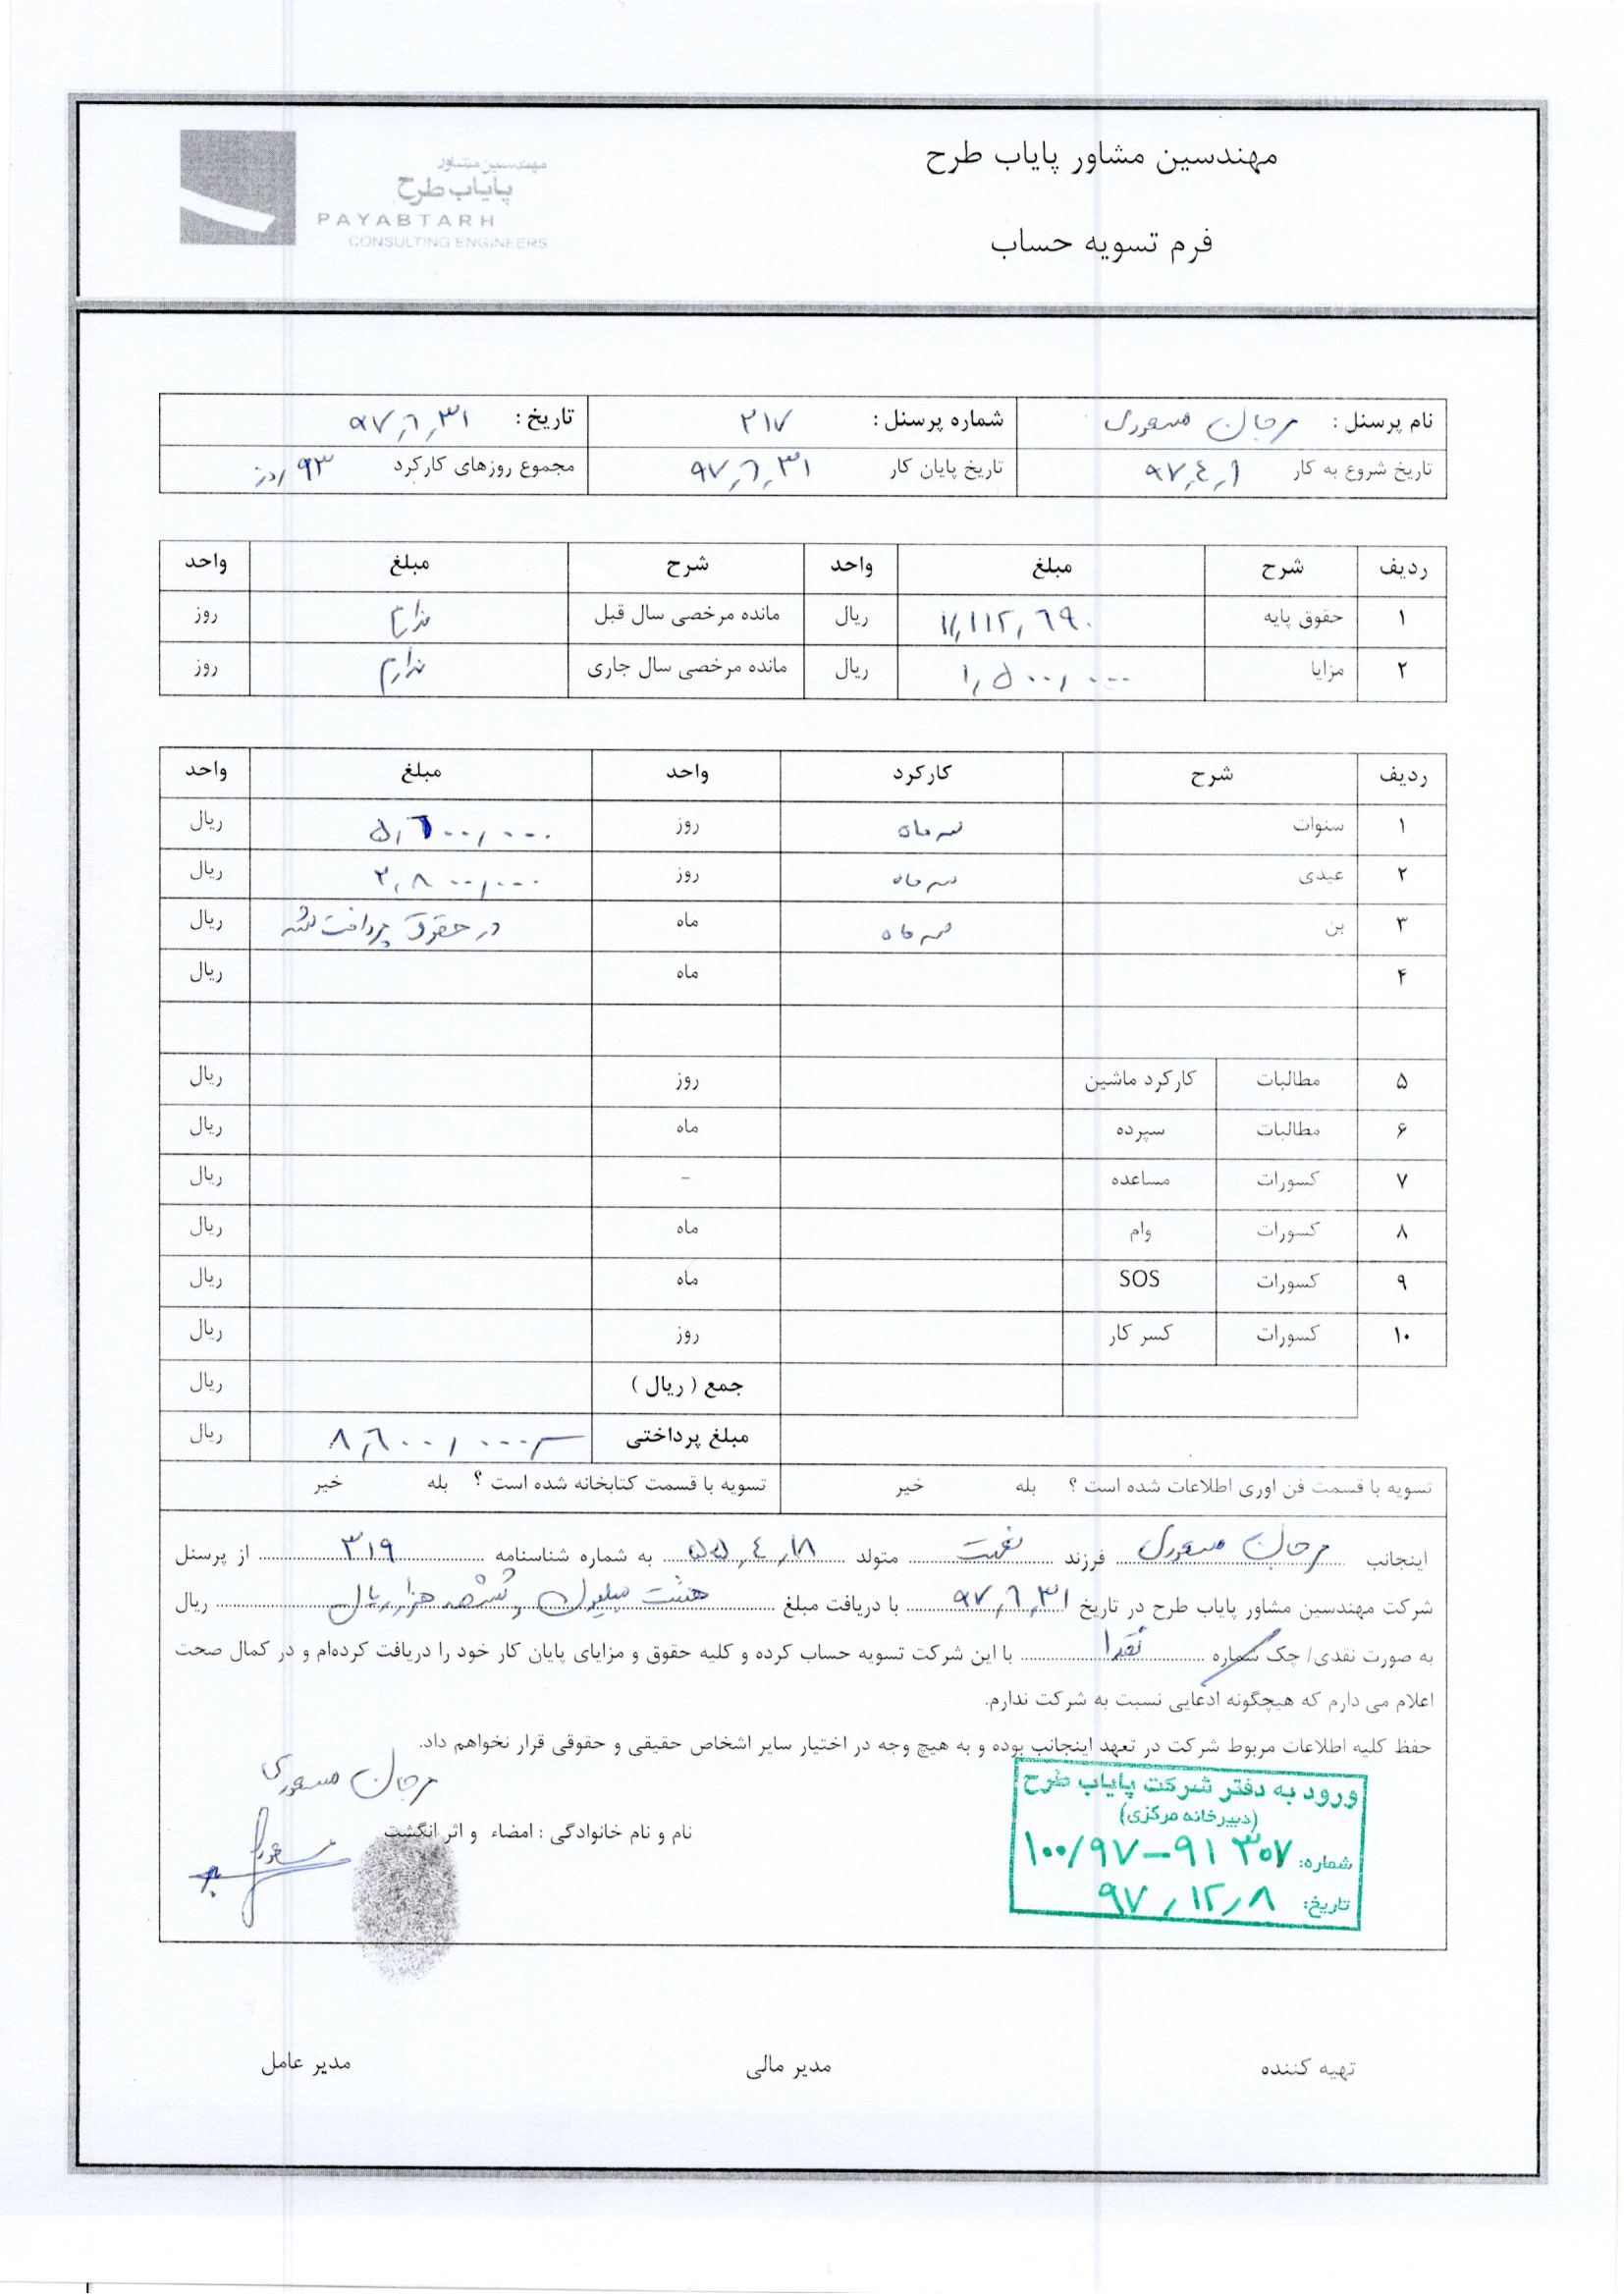 مهندسین مشاور پایاب طرح
فرم تسویه حساب
مهندسین مشاور
پایاب طرح
PAYABTARH
CONSULTING ENGINEERS
نام پرسنل : مرجان مسعودی شماره پرسنل : ۲۱۷ تاریخ : ۹۷,۶,۳۱
تاریخ شروع به کار ۹۷,۴,۱ تاریخ پایان کار ۹۷,۶,۳۱ مجموع روزهای کارکرد ۹۳ روز
ردیف شرح مبلغ واحد شرح مبلغ واحد
۱ حقوق پایه ۱۱,۱۱۲,۶۹۰ ریال مانده مرخصی سال قبل ندارم روز
۲ مزایا ۱,۵۰۰,۰۰۰ ریال مانده مرخصی سال جاری ندارم روز
ردیف شرح کارکرد واحد مبلغ واحد
۱ سنوات سه ماه روز ۵,۶۰۰,۰۰۰ ریال
۲ عیدی سه ماه روز ۲,۸۰۰,۰۰۰ ریال
۳ بن سه ماه ماه در حقوق پرداخت شده ریال
۴ ماه ریال
۵ مطالبات کارکرد ماشین روز ریال
۶ مطالبات سپرده ماه ریال
۷ کسورات مساعده - ریال
۸ کسورات وام ماه ریال
۹ کسورات SOS ماه ریال
۱۰ کسورات کسر کار روز ریال
جمع ( ریال ) ریال
مبلغ پرداختی ۸,۶۰۰,۰۰۰ ریال
تسویه با قسمت فن اوری اطلاعات شده است ؟ بله خیر تسویه با قسمت کتابخانه شده است ؟ بله خیر
اینجانب مرجان مسعودی فرزند نعمت متولد ۵۵,۴,۱۸ به شماره شناسنامه ۳۱۹ از پرسنل
شرکت مهندسین مشاور پایاب طرح در تاریخ ۹۷,۶,۳۱ با دریافت مبلغ هشت میلیون و ششصد هزار ریال ریال
به صورت نقدی/ چک شماره نقدا با این شرکت تسویه حساب کرده و کلیه حقوق و مزایای پایان کار خود را دریافت کرده‌ام و در کمال صحت
اعلام می دارم که هیچگونه ادعایی نسبت به شرکت ندارم.
حفظ کلیه اطلاعات مربوط شرکت در تعهد اینجانب بوده و به هیچ وجه در اختیار سایر اشخاص حقیقی و حقوقی قرار نخواهم داد.
مرجان مسعودی
نام و نام خانوادگی : امضاء و اثر انگشت
ورود به دفتر شرکت پایاب طرح
(دبیرخانه مرکزی)
شماره: ۱۰۰/۹۷-۹۱۳۰۷
تاریخ: ۹۷,۱۲,۸
تهیه کننده مدیر مالی مدیر عامل